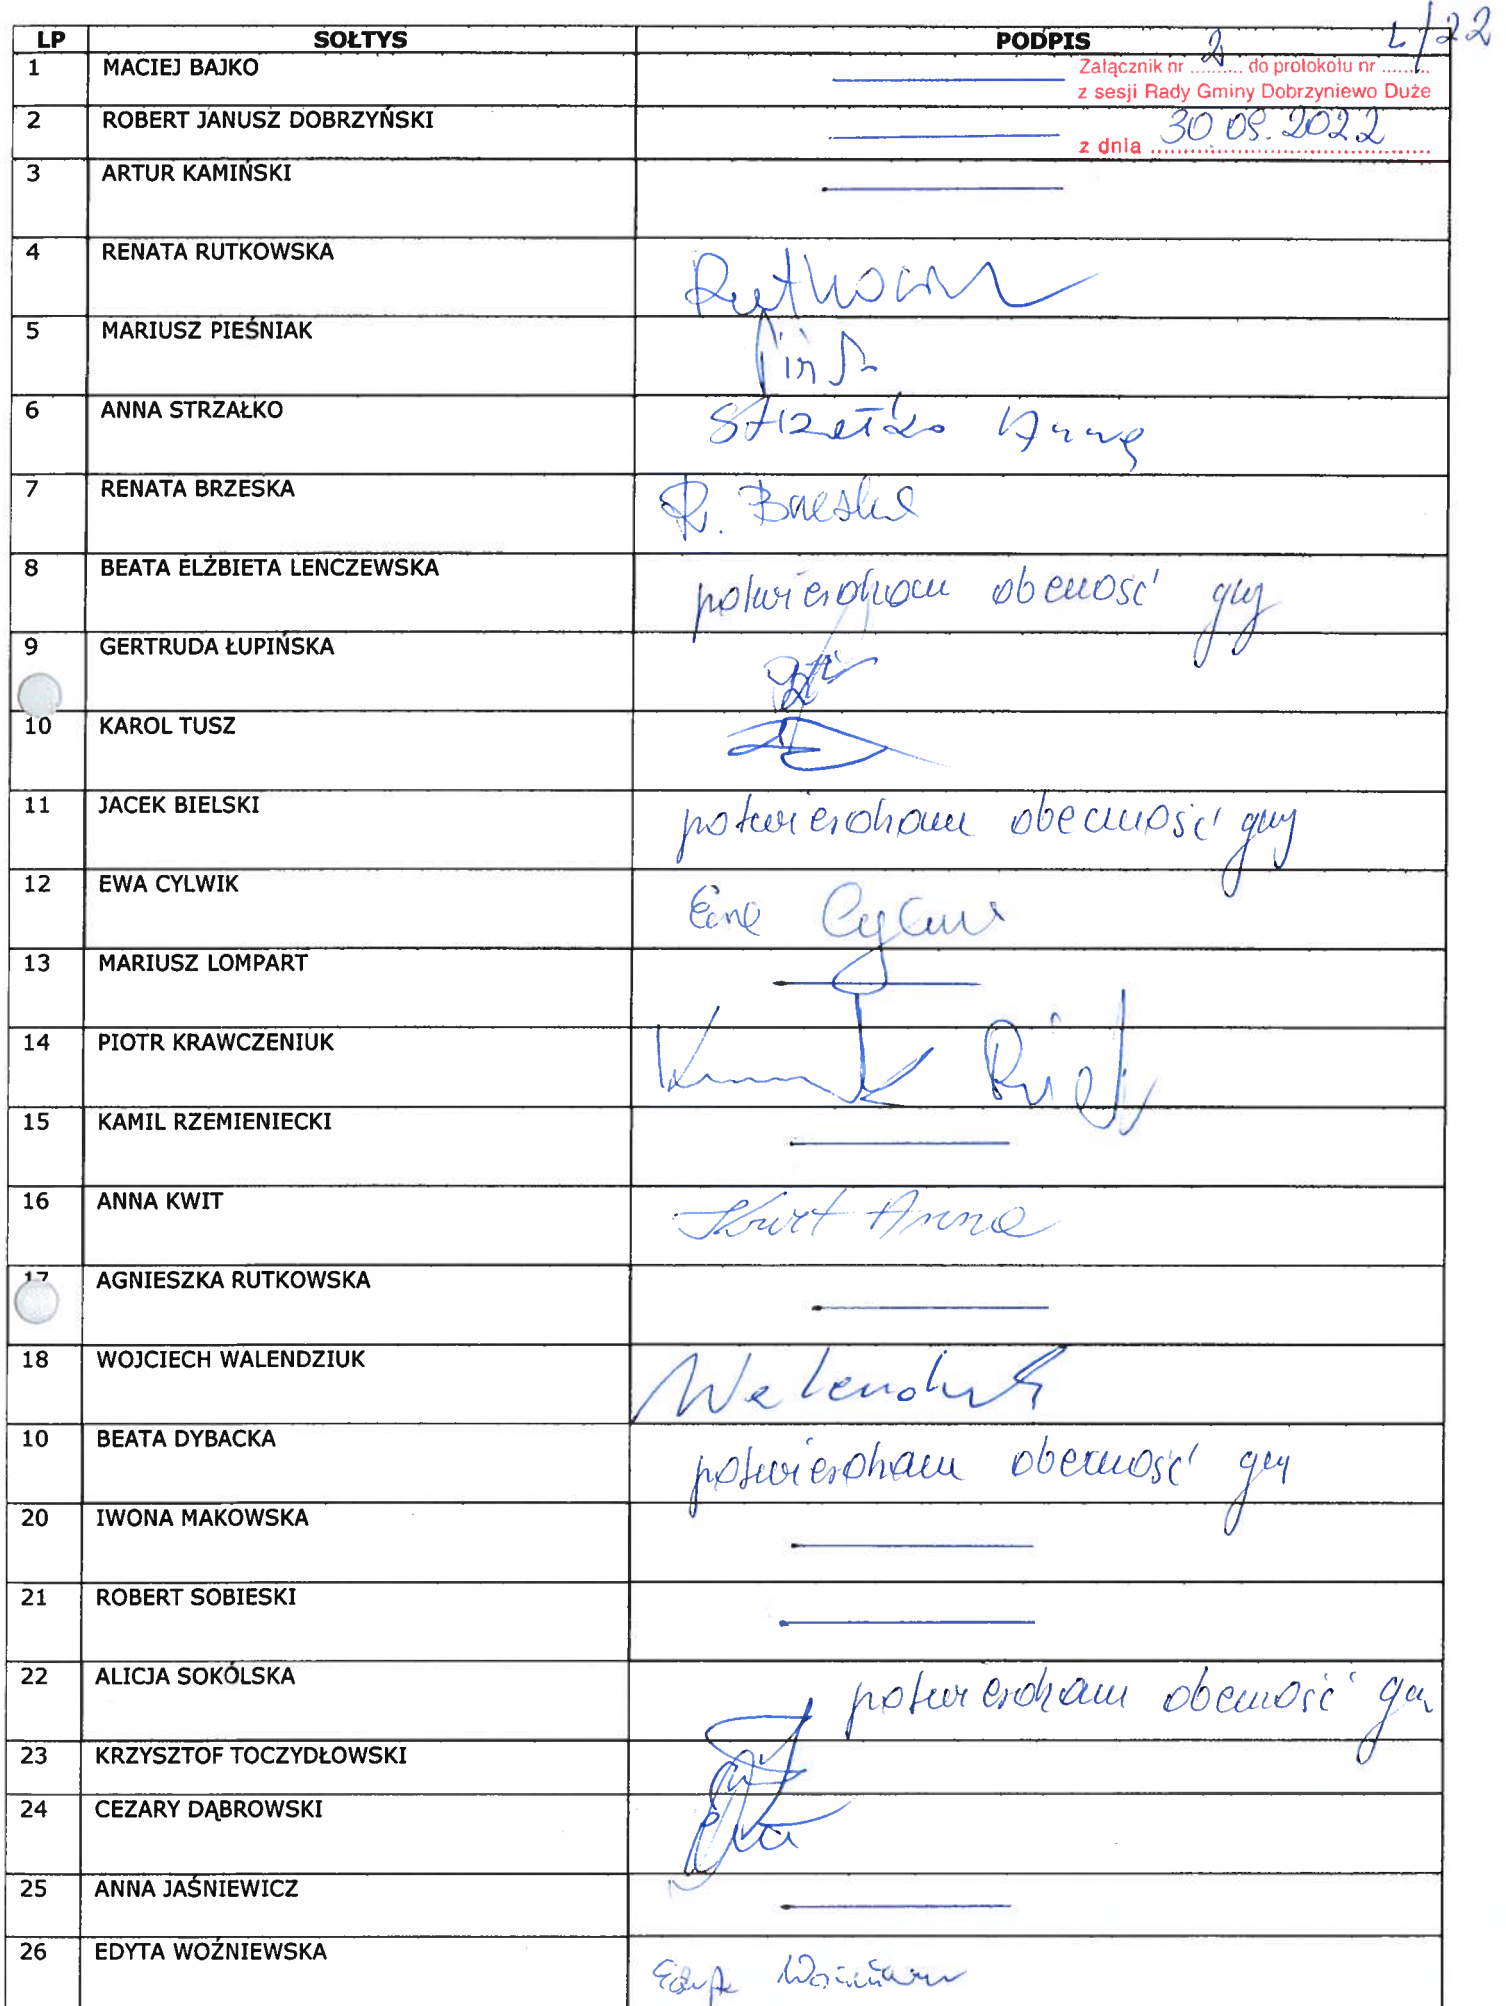 LP SOŁTYS PODPIS
L/22
1 MACIEJ BAJKO
Załącznik nr 2 do protokołu nr
z sesji Rady Gminy Dobrzyniewo Duże
2 ROBERT JANUSZ DOBRZYŃSKI
z dnia 30 09. 2022
3 ARTUR KAMIŃSKI
4 RENATA RUTKOWSKA
5 MARIUSZ PIEŚNIAK
6 ANNA STRZAŁKO Strzałko Anna
7 RENATA BRZESKA R. Brzeska
8 BEATA ELŻBIETA LENCZEWSKA potwierdzam obecność
9 GERTRUDA ŁUPIŃSKA
10 KAROL TUSZ
11 JACEK BIELSKI potwierdzam obecność
12 EWA CYLWIK Ewa Cylwik
13 MARIUSZ LOMPART
14 PIOTR KRAWCZENIUK
15 KAMIL RZEMIENIECKI
16 ANNA KWIT Kwit Anna
17 AGNIESZKA RUTKOWSKA
18 WOJCIECH WALENDZIUK
10 BEATA DYBACKA potwierdzam obecność
20 IWONA MAKOWSKA
21 ROBERT SOBIESKI
22 ALICJA SOKÓLSKA potwierdzam obecność
23 KRZYSZTOF TOCZYDŁOWSKI
24 CEZARY DĄBROWSKI
25 ANNA JAŚNIEWICZ
26 EDYTA WOŹNIEWSKA Edyta